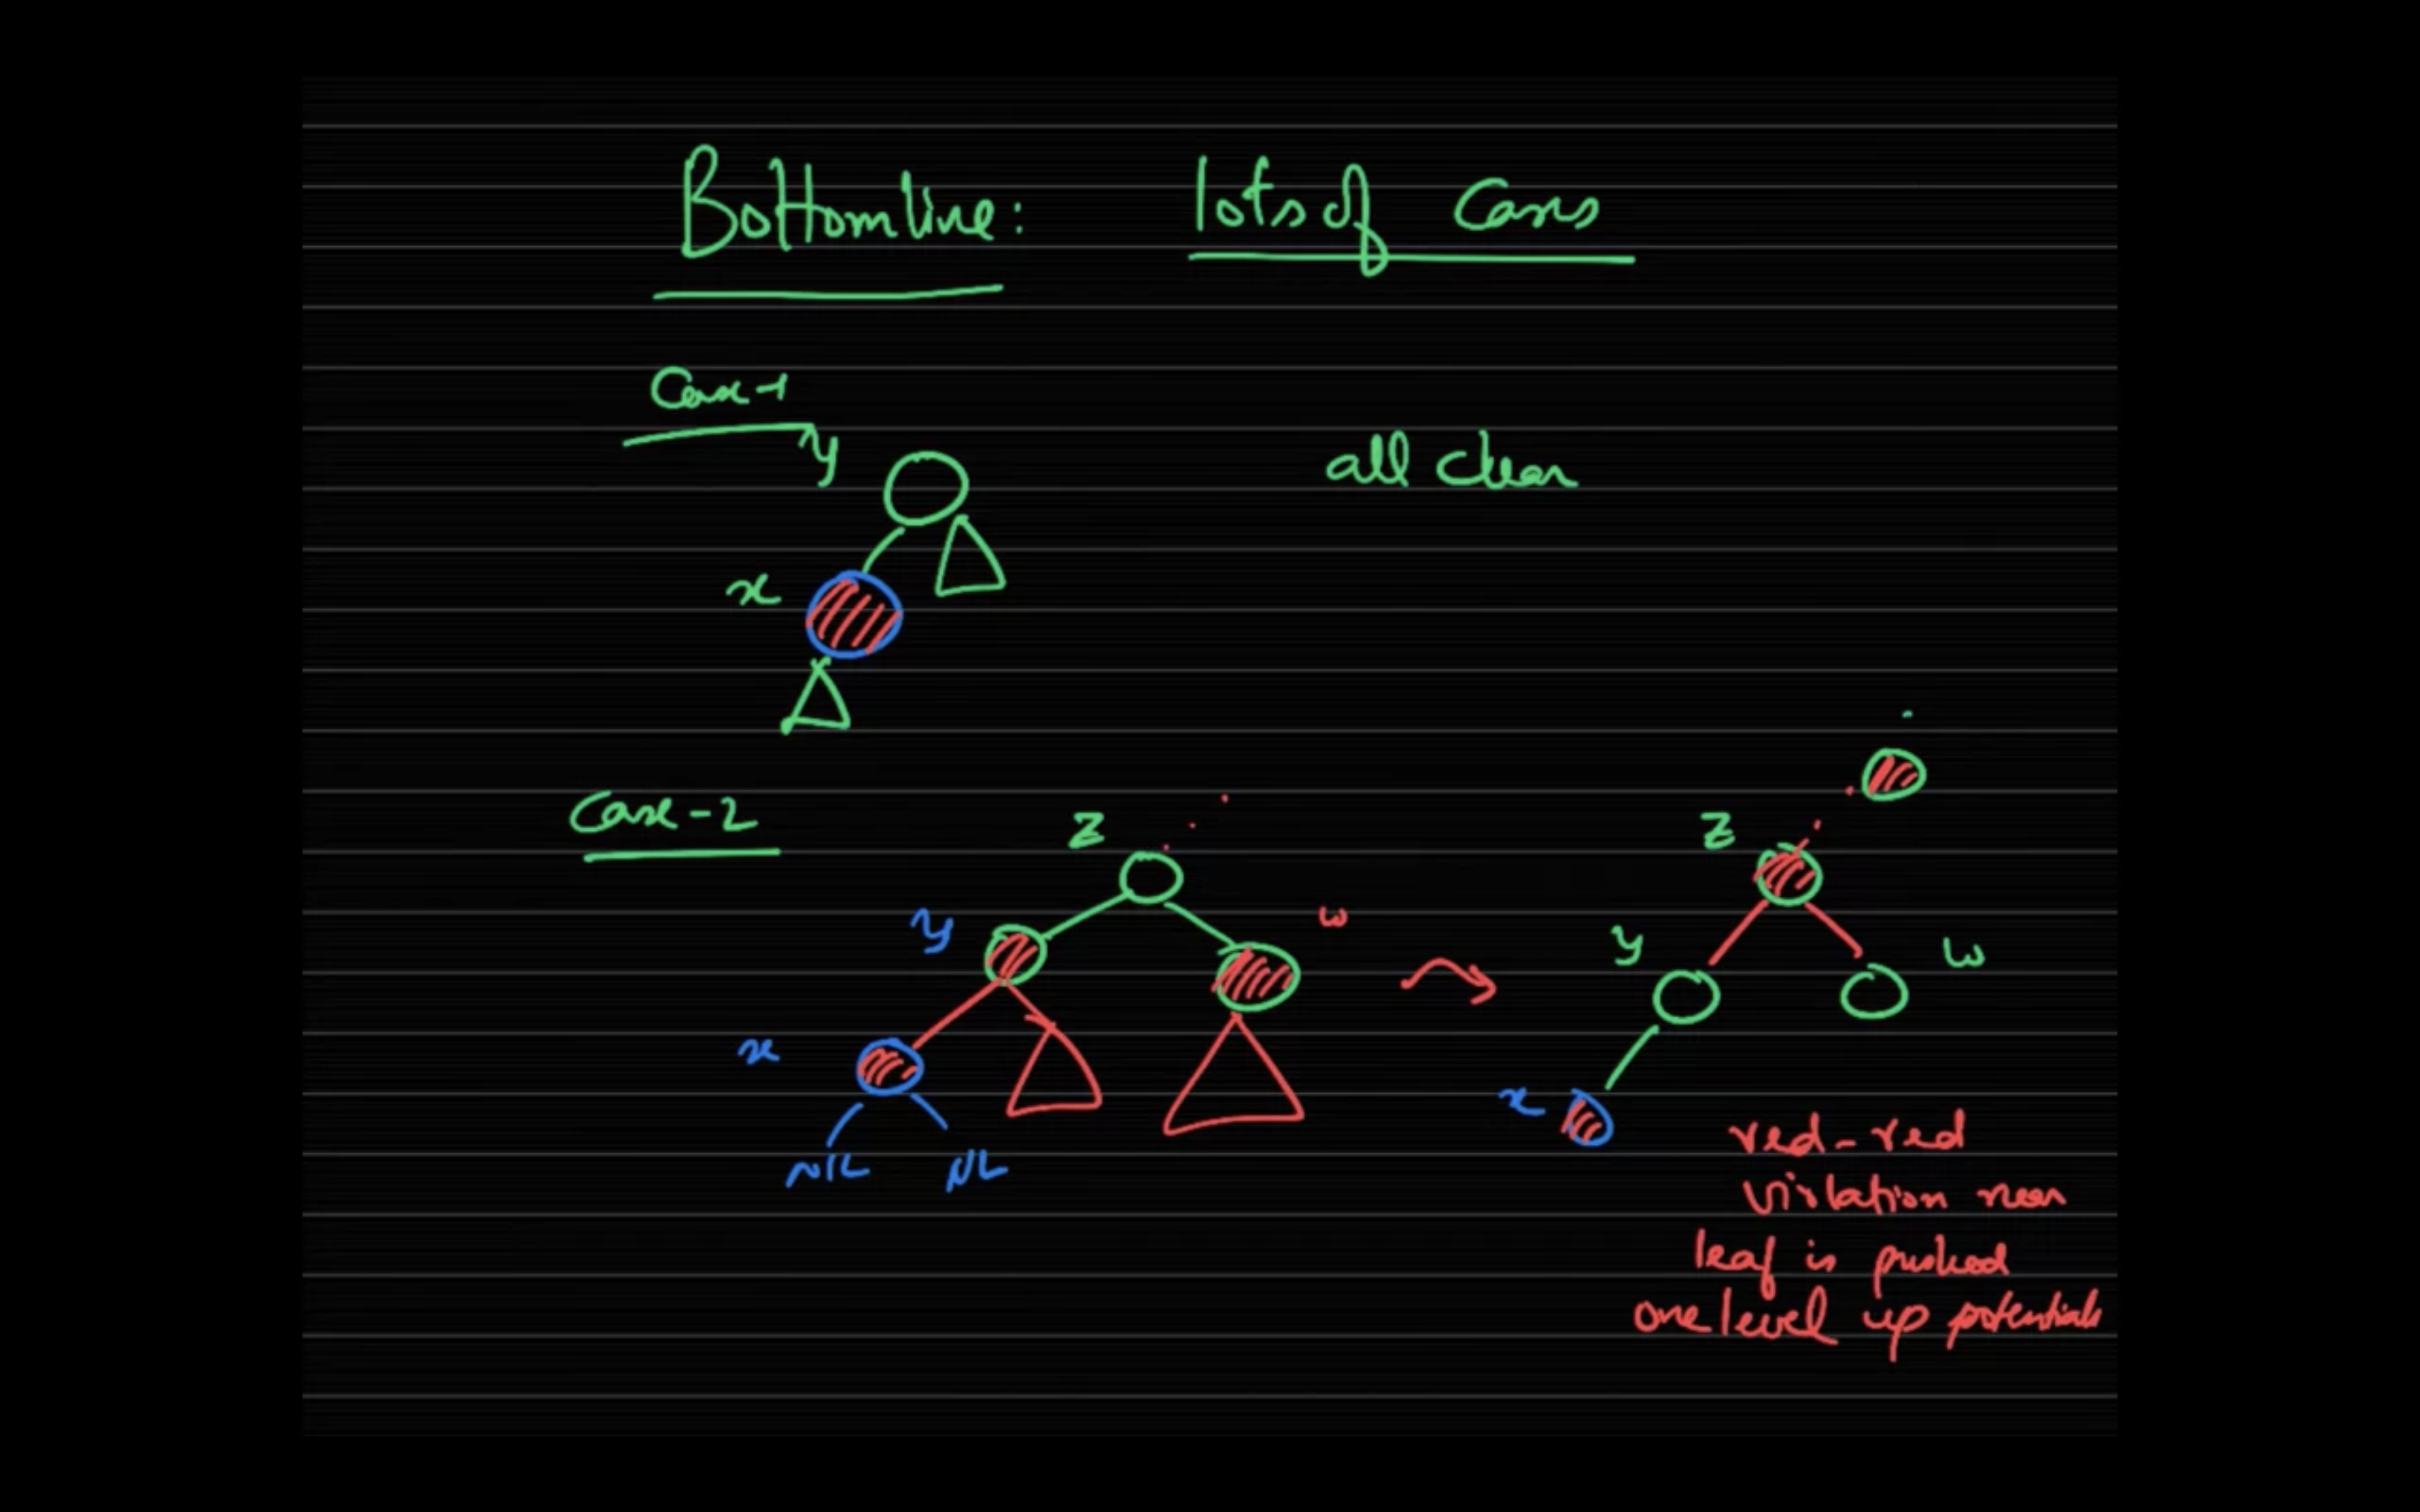 Bottomline: lots of Cases
Case-1
y
all clear
x
Case-2
z
z
y
w
y
w
x
x
NIL
NIL
red-red
violation near
leaf is pushed
one level up potentially